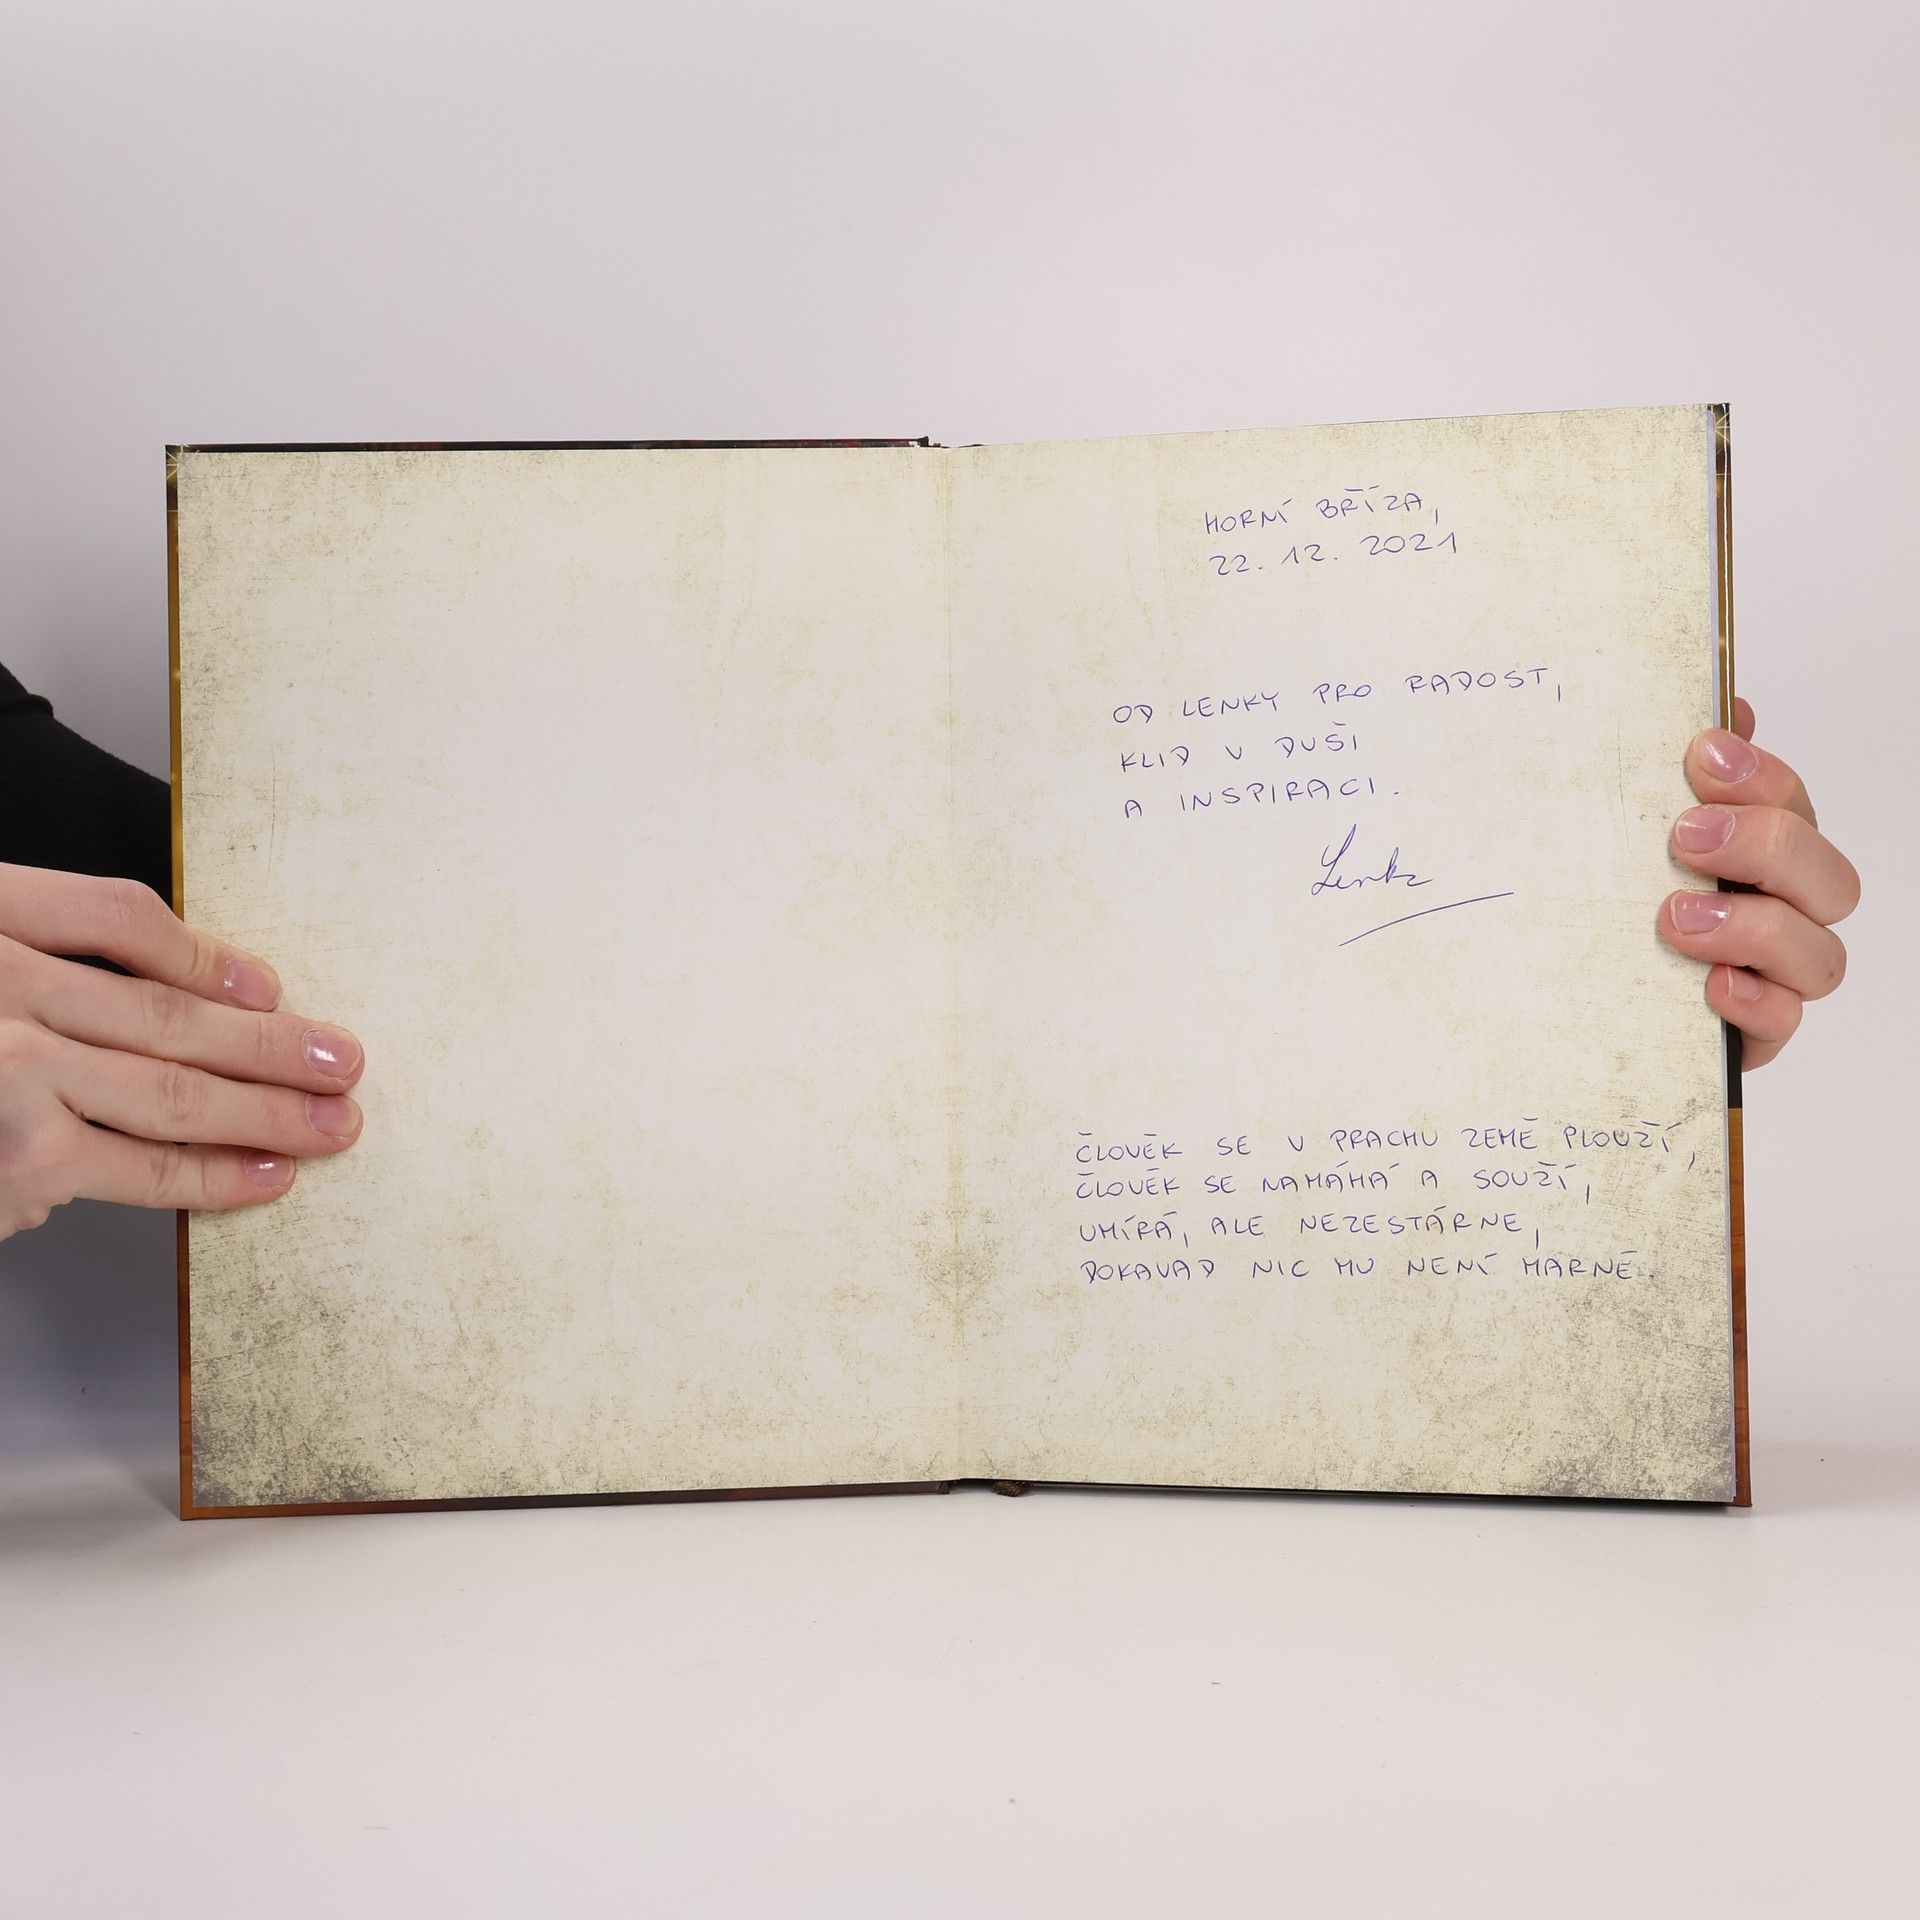 HORNÍ BŘÍZA,
22. 12. 2021
OD LENKY PRO RADOST,
KLID V DUŠI
A INSPIRACI.
Lenka
ČLOVĚK SE V PRACHU ZEMĚ PLOUŽÍ,
ČLOVĚK SE NAMÁHÁ A SOUŽÍ,
UMÍRÁ, ALE NEZESTÁRNE,
DOKAVAD NIC MU NENÍ MARNÉ.